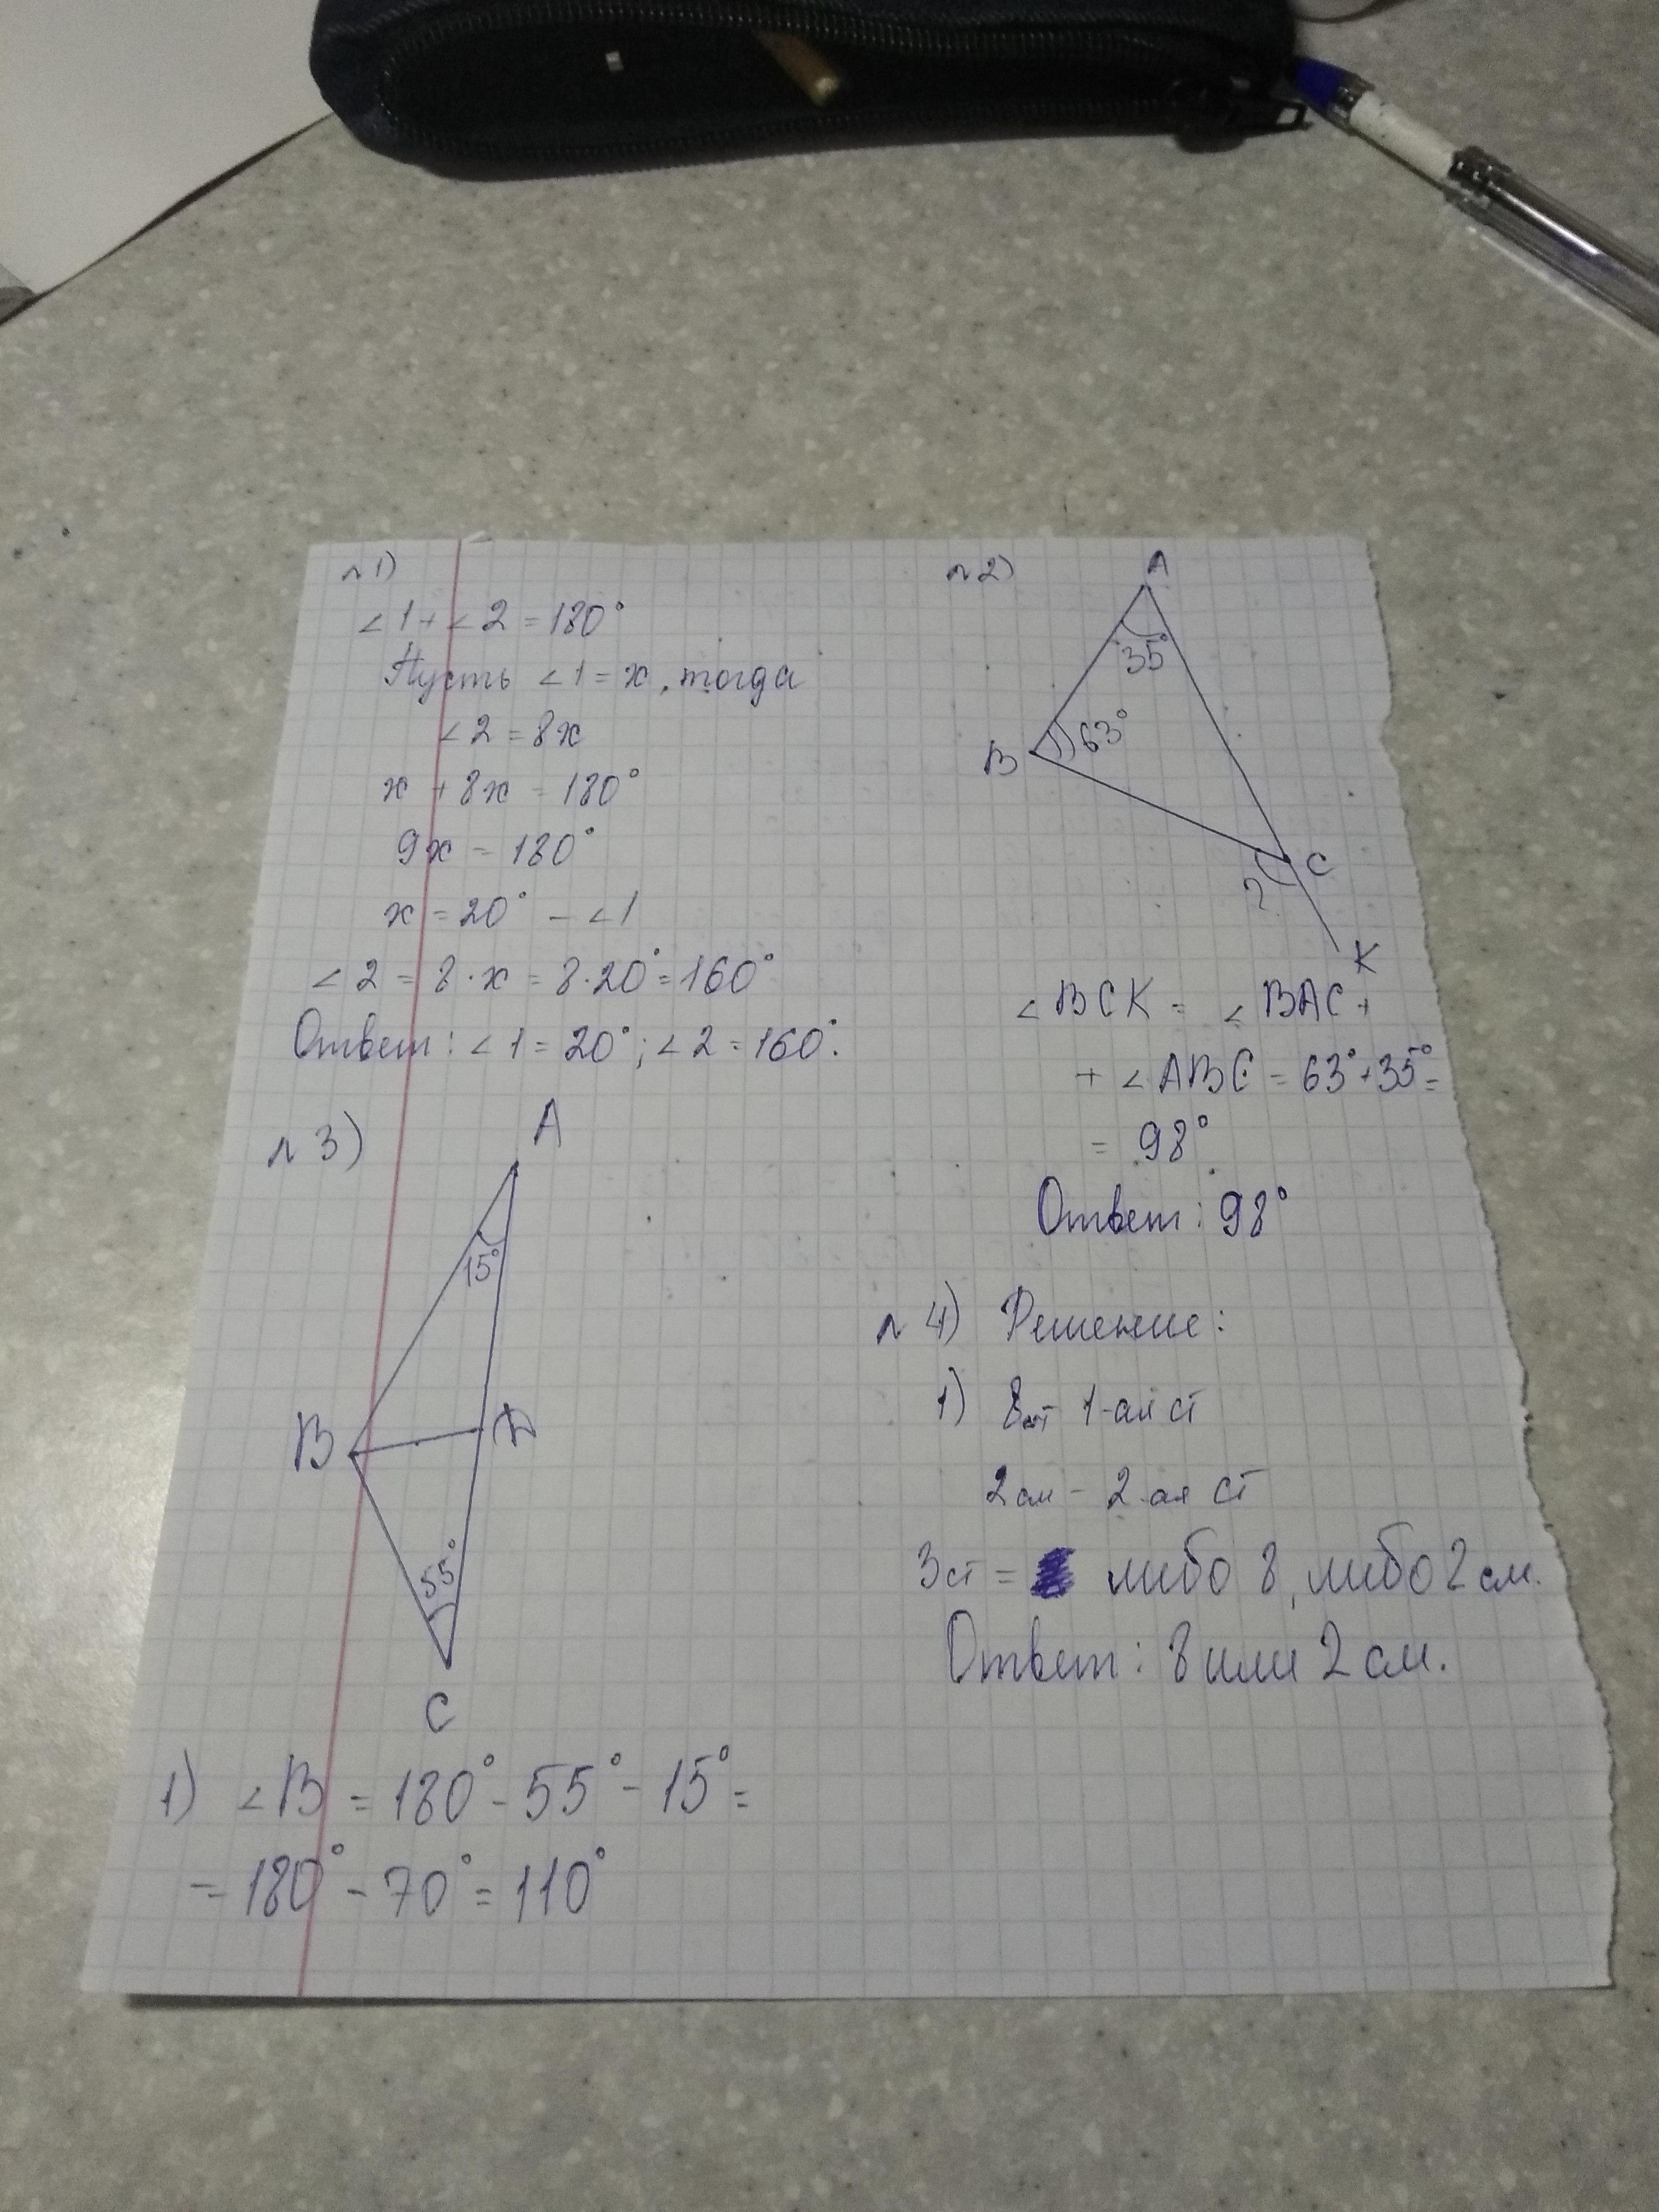 №1)
∠1+∠2=180°
Пусть ∠1=x, тогда
∠2=8x
x+8x=180°
9x=180°
x=20° - ∠1
∠2=8·x=8·20°=160°
Ответ: ∠1=20°; ∠2=160°.
№2)
A
35°
63°
B
C
?
K
∠BCK = ∠BAC +
+ ∠ABC = 63°+35°=
= 98°
Ответ: 98°
№3)
A
15°
B
D
55°
C
1) ∠B = 180° - 55° - 15° =
= 180° - 70° = 110°
№4) Решение:
1) 8см 1-ая ст
2см - 2-ая ст
3ст = либо 8, либо 2 см.
Ответ: 8 или 2 см.